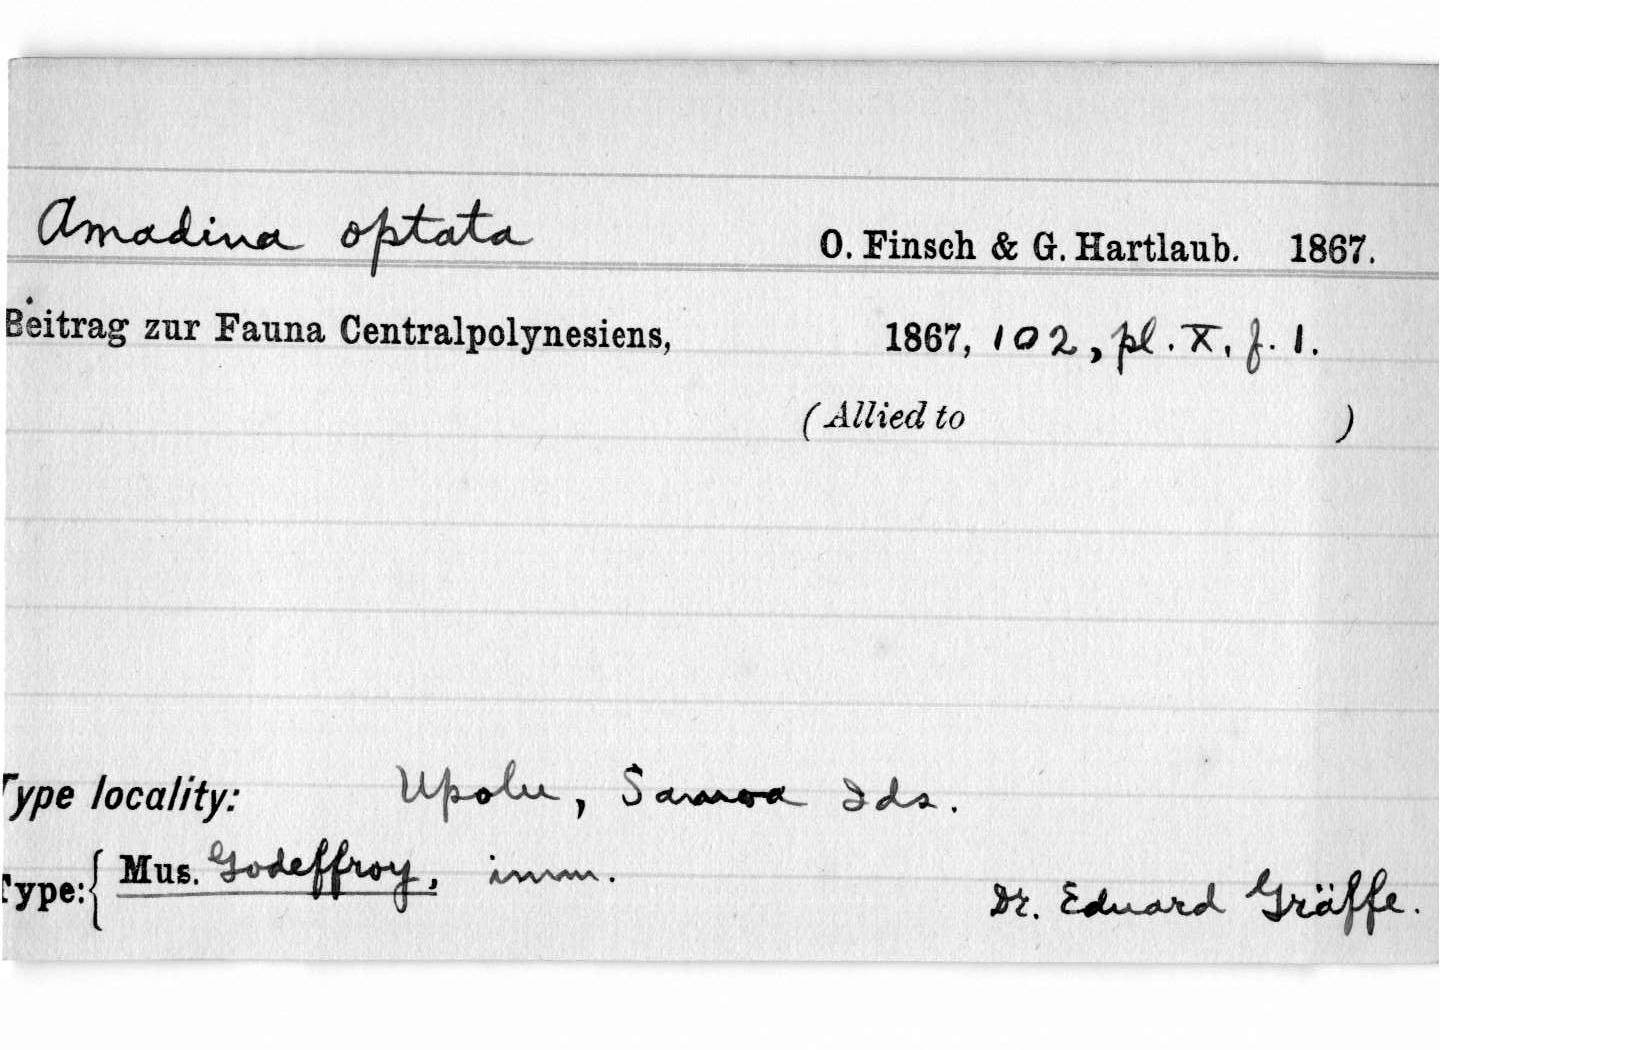 Amadina optata O. Finsch & G. Hartlaub. 1867.
Beitrag zur Fauna Centralpolynesiens, 1867, 102, pl. X, f. 1.
(Allied to )
Type locality: Upolu, Samoa Ids.
Type: { Mus. Godeffroy, imm.
Dr. Eduard Gräffe.